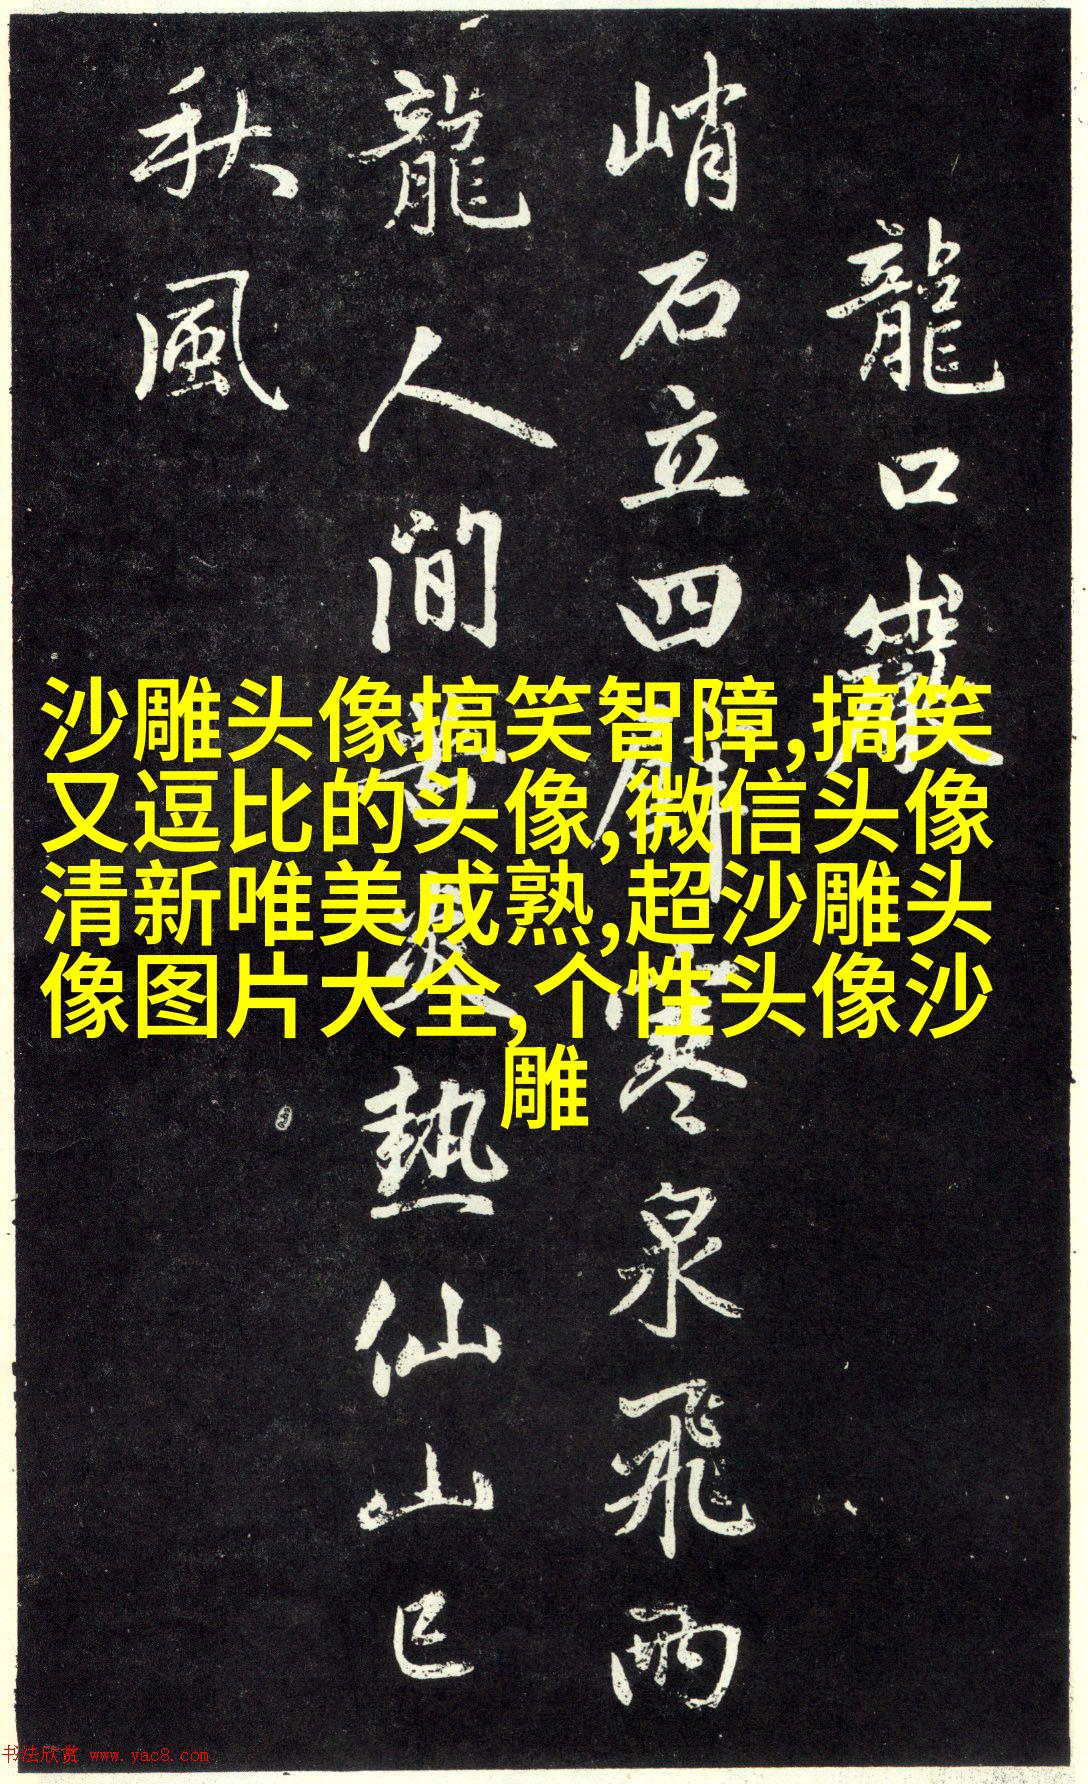 龍口巖
峭石立四壁寒泉飛兩
龍人間苦炎熱仙山已
秋風
沙雕头像搞笑智障,搞笑
又逗比的头像,微信头像
清新唯美成熟,超沙雕头
像图片大全,个性头像沙
雕
书法欣赏 www.yac8.com